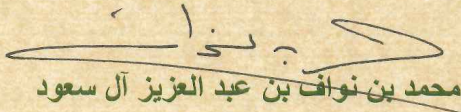 محمد بن نواف بن عبد العزيز آل سعود